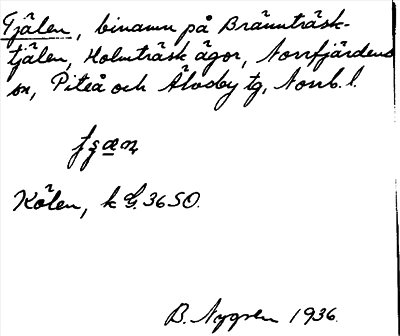 Tjälen, binamn på Brännträsk-
tjälen, Holmträsk ägor, Norrfjärdens
sn, Piteå och Älvsby tg, Norrb. l.
Kölen, k G. 36 SO.
B. Nygren 1936.